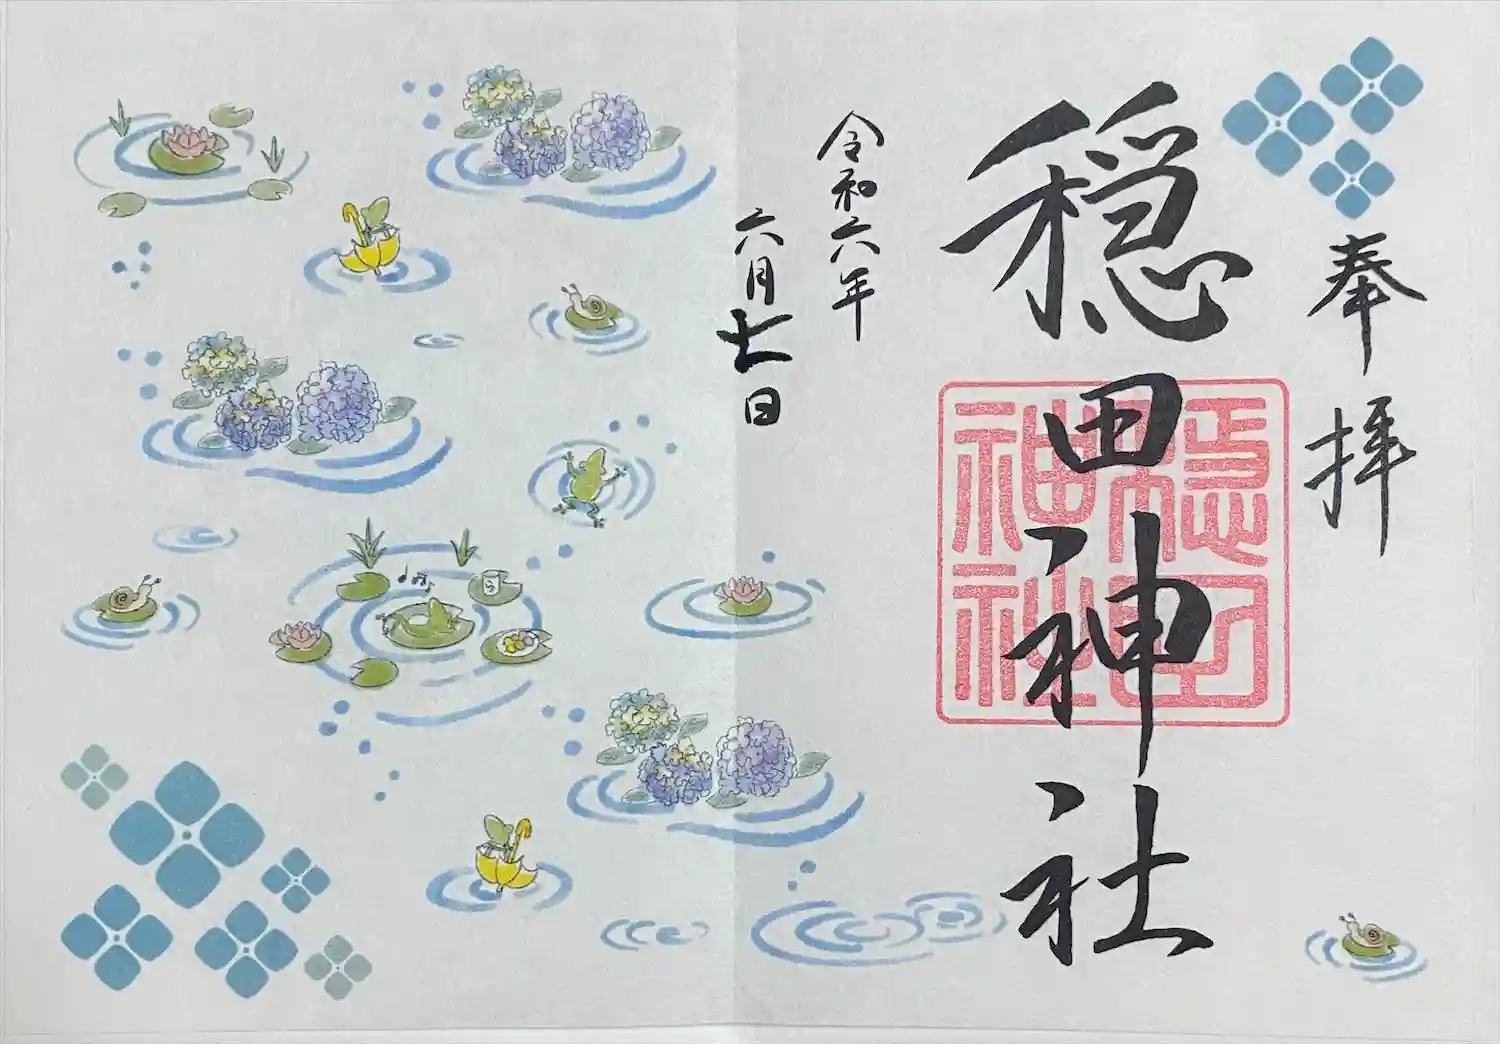 奉拝
穏田神社
穏田
神社
令和六年
六月七日